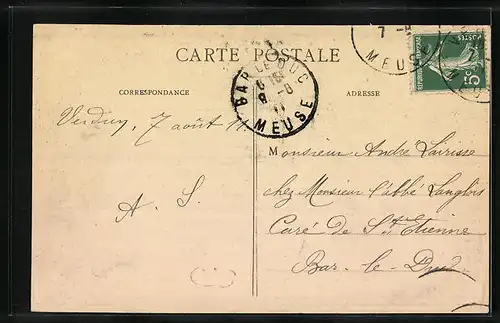 CARTE POSTALE
CORRESPONDANCE
ADRESSE
BAR-LE-DUC
8-8
11
MEUSE
7 -8
MEUSE
5c
Verdun, 7 août 11
A. S.
Monsieur André
chez Monsieur l'abbé Langlois
Curé de St Etienne
Bar-le-Duc